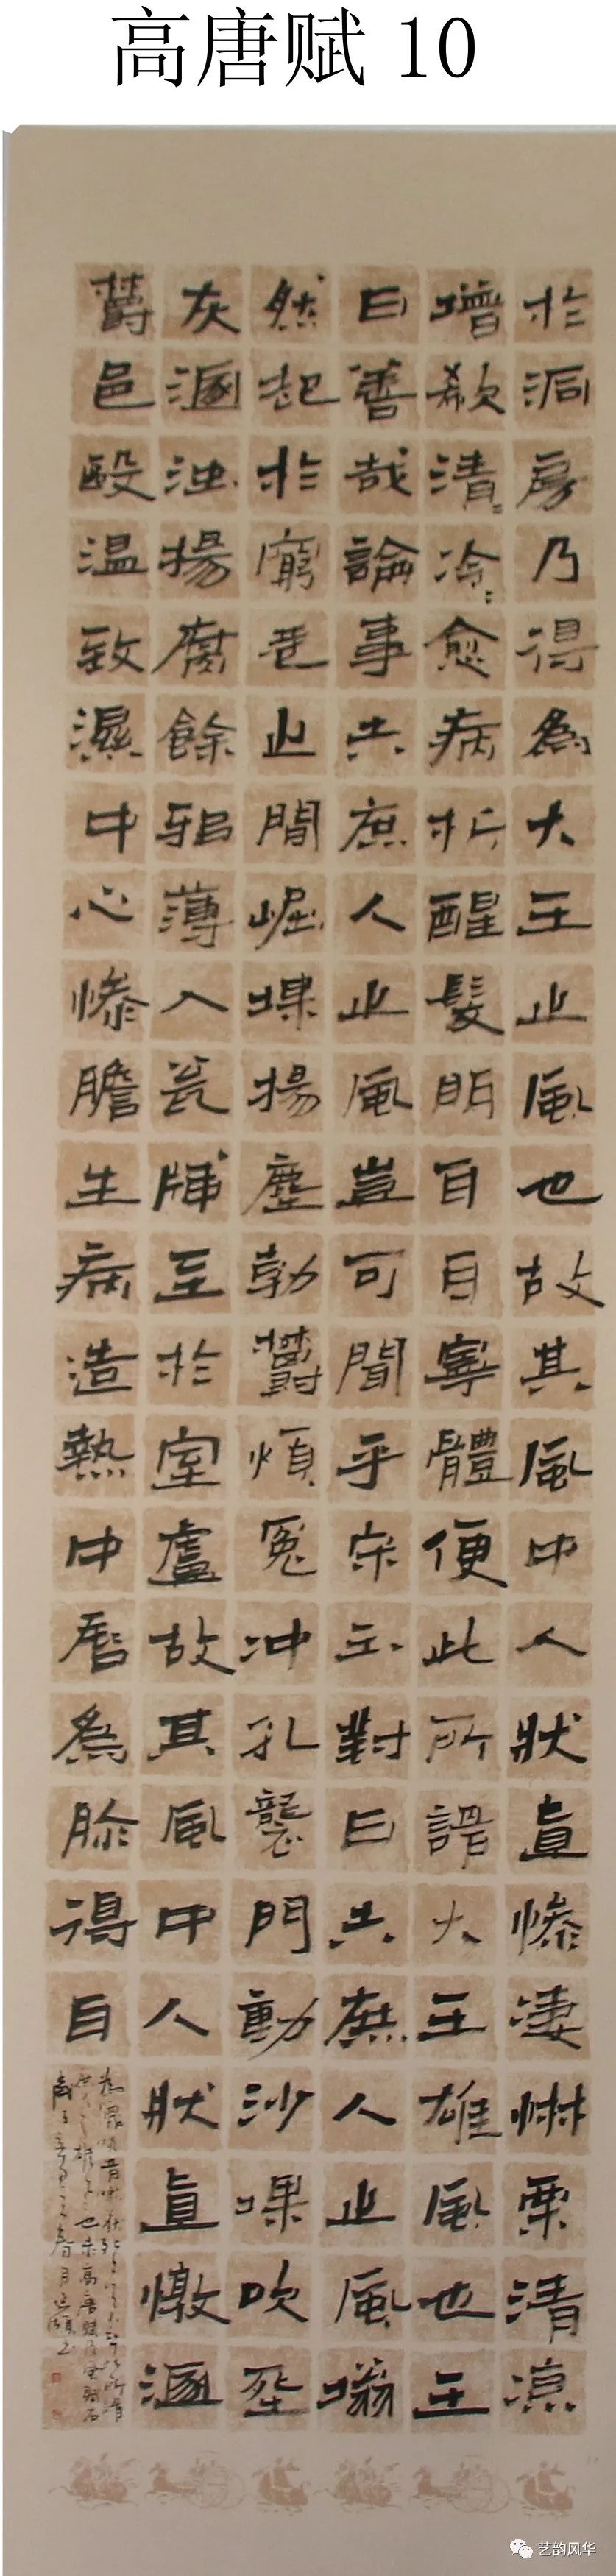 高唐赋 10
於洞房乃得為大王止風也故其風中人狀直惨凄惏栗清凉
增欷清=冷=愈病析酲髮明耳目寧體便此所謂大王雄風也王
曰善哉論事夫庶人止風豈可聞乎宋玉對曰夫庶人止風塕
然起於窮巷止間崛堁揚塵勃鬱煩冤冲孔襲門動沙堁吹死
灰溷浊揚腐餘邪薄入瓮牖至於室廬故其風中人狀直憞溷
欝邑毆温致濕中心惨膽生病造熱中唇為胗得目
艺韵风华